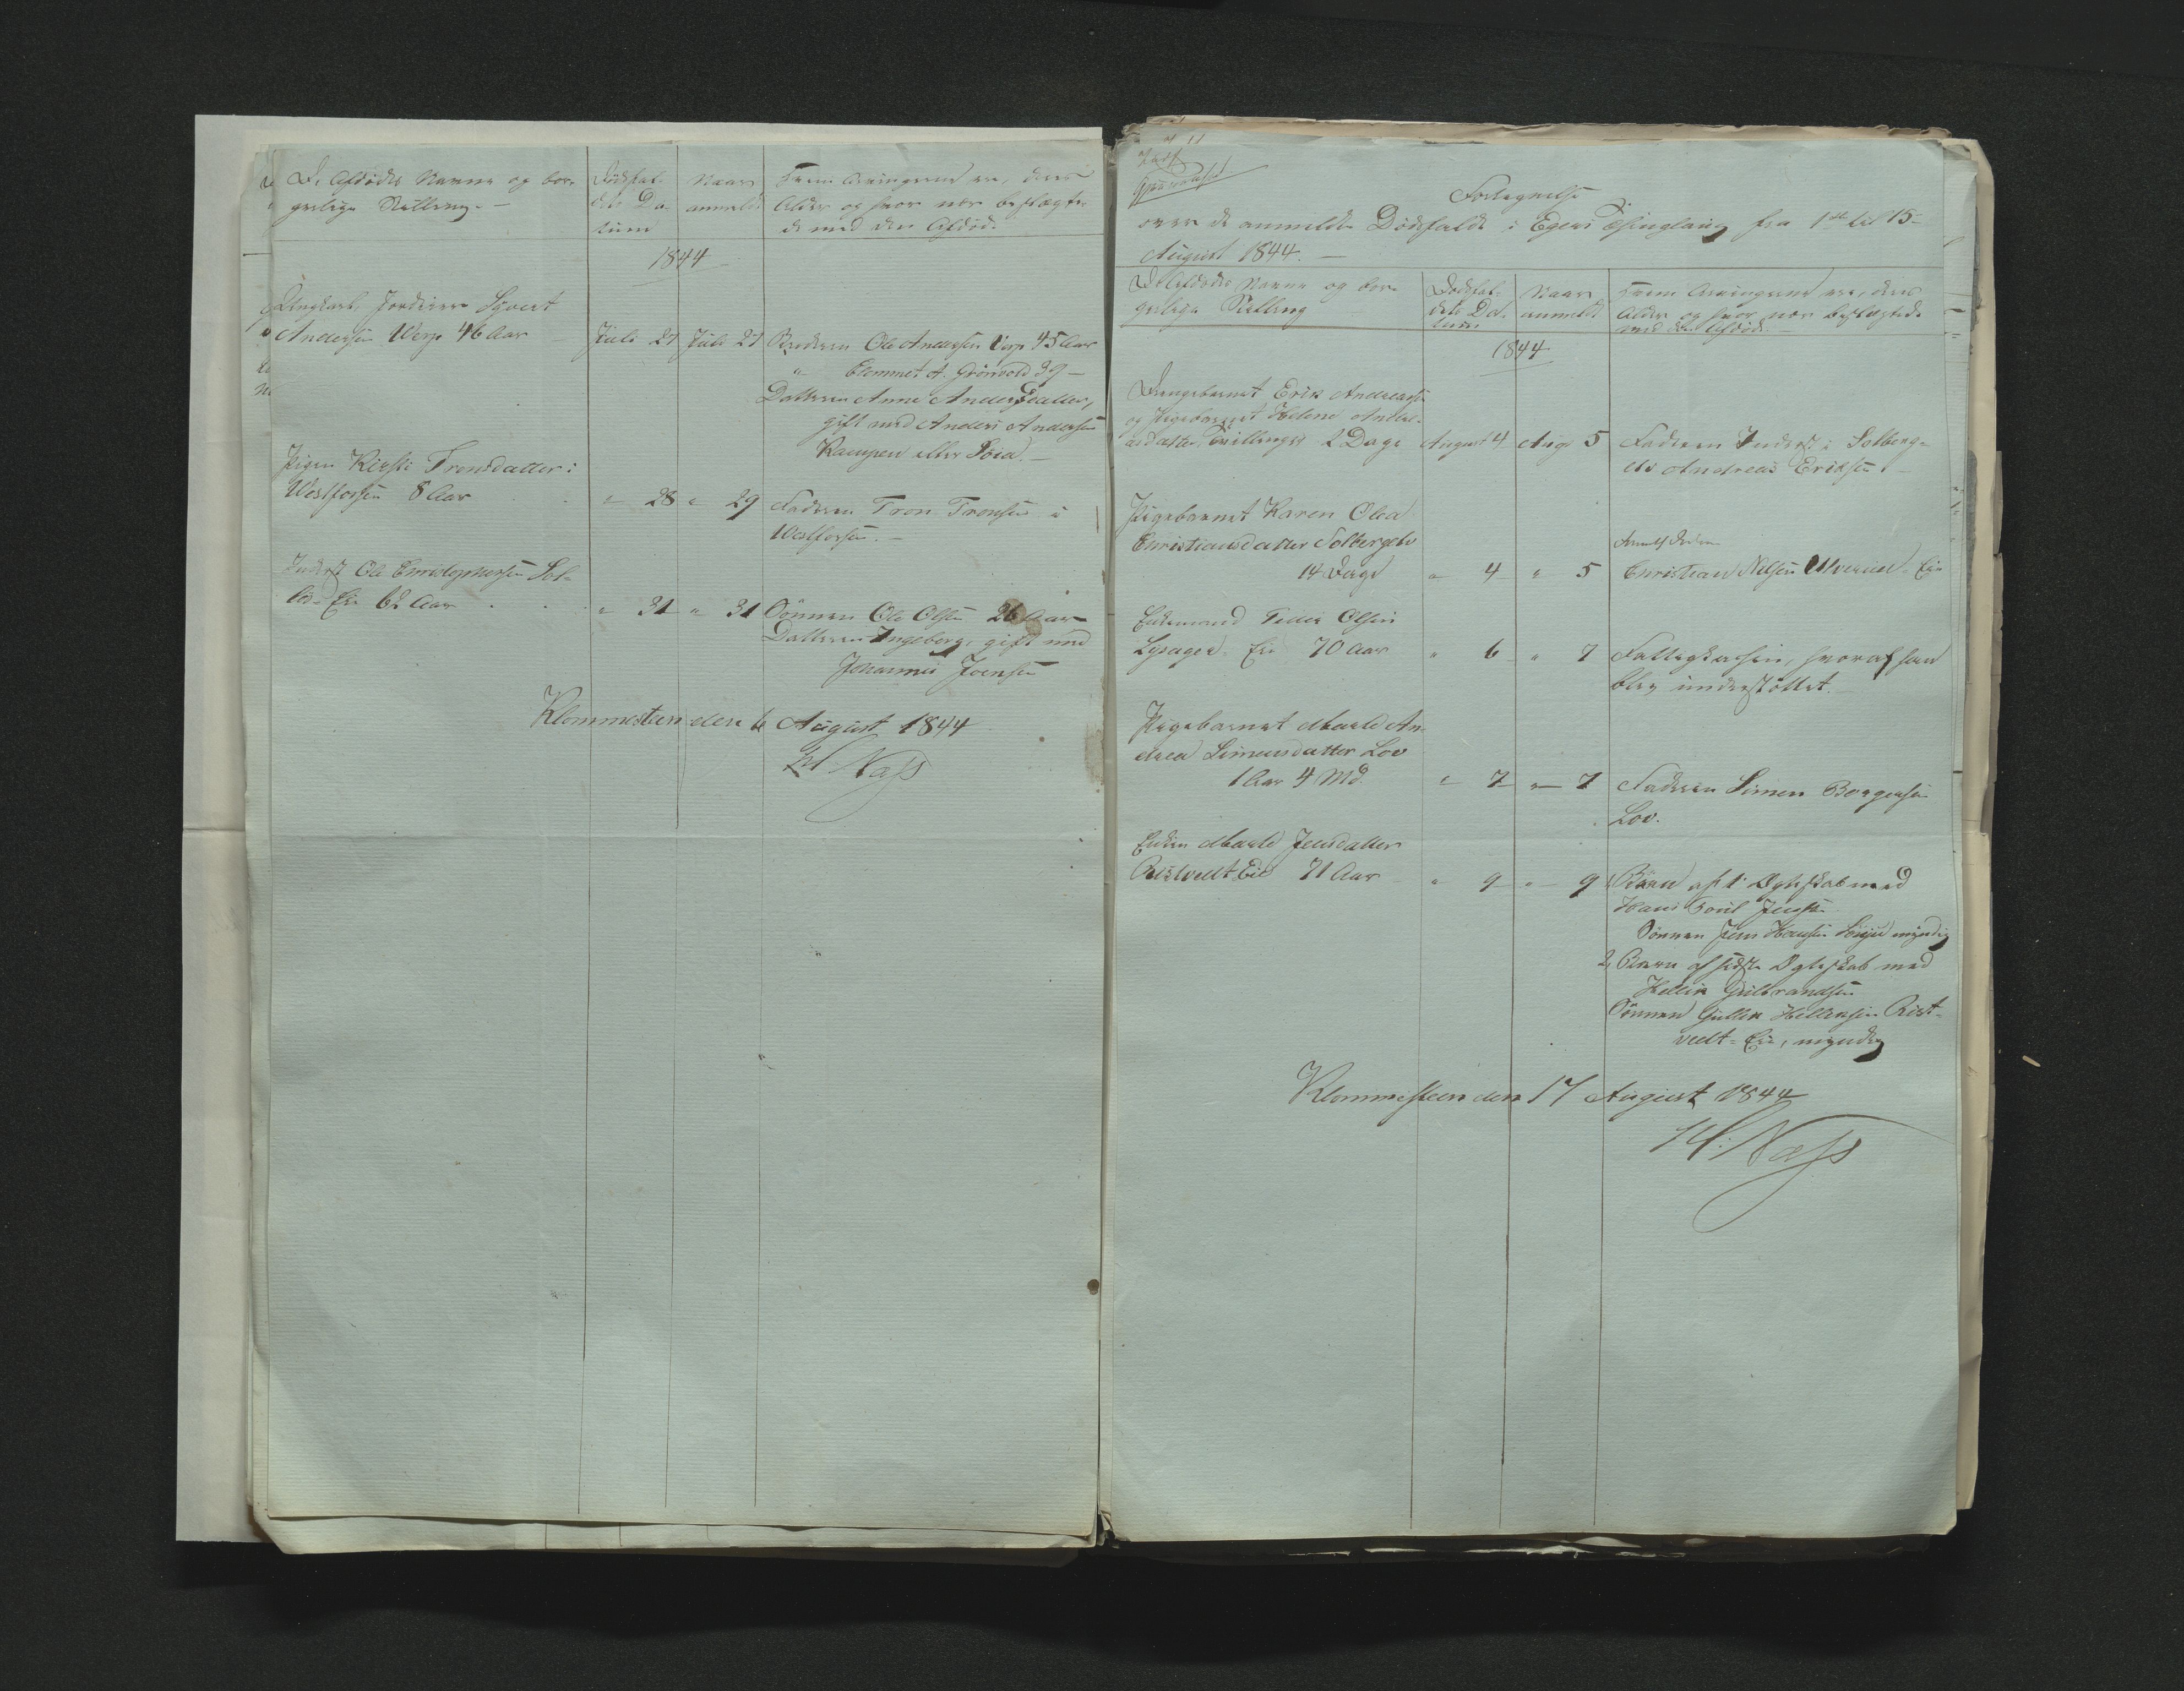 De Afdødes Navne og bor-
gerlige Stilling.
Dödsfal-
dets Da-
tum
Naar
anmeldt
Hvem Arvingerne ere, deres
Alder og hvor nær beslægte-
de med den Afdøde
1844
Ungkarl, Jordeier Syvert
Andersen Werp 46 Aar
Juli 27 Juli 27
Broderen Ole Andersen Werp 45 Aar
" Clemmet A. Grönvold 39 —
Datteren Anne Andersdatter,
gift med Anders Andersen
Kampen eller
Pigen Kirsti Tronsdatter i
Westfossen 8 Aar
" 28 " 29
Faderen Tron Tronsen i
Westfossen. —
Inderst Ole Christophersen Sol-
Eie 62 Aar
" 31 " 31
Sönnen Ole Olsen 26 Aar
Datteren Ingeborg, gift med
Johannes Joensen
Klommesteen den 6 August 1844
H Nass
Fortegnelse
over de anmeldte Dödsfalde i Egers Thinglaug fra 1ste til 15-
August 1844. —
De Afdødes Navne og bor-
gerlige Stilling
Dödsfal-
dets Da-
tum
Naar
anmeldt
Hvem Arvingerne ere, deres
Alder og hvor nær beslægtede
med den Afdøde. —
1844
Drengebarnet Erik Andreassen
og Pigebarnet Helene Andre-
asdatter Tvillinger 2 Dage
August 4 Aug 5
Faderen Inderst i Solberg-
elv Andreas Eriksen. —
Pigebarnet Karen Olea
Christiansdatter Solbergelv
14 Dage
" 4 " 5
Christian Nilsen Ulverud-Eie
Enkemand Olsen
Lysager-Eie 70 Aar
" 6 " 7
Fattigkassen, hvoraf han
blev understöttet. —
Pigebarnet Maale An-
drea Simensdatter Lov
1 Aar 4 Md.
" 7 " 7
Faderen Simen Borgersen
Lov.
Enken Marte Jensdatter
Ristvedt Eie 71 Aar
" 9 " 9
1, Börn af 1' Ægteskab med
Hans Poul Jensen
Sönnen Jens Hansen myndig
2, Börn af sidste Ægteskab med
Hellik Gulbrandsen
Sönnen Gullik Helliksen Rist-
vedt-Eie, myndig
Klommesteen den 17 August 1844
H. Nass